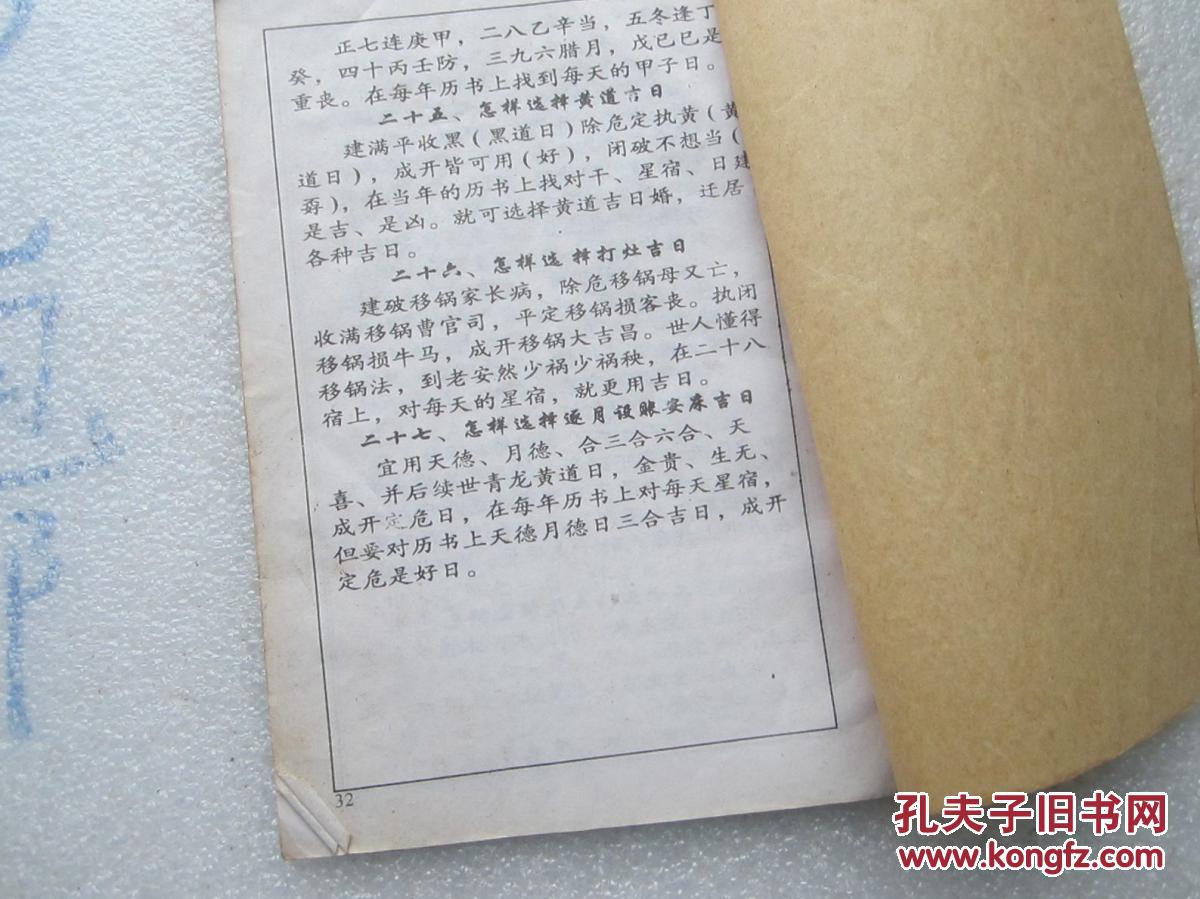 正七连庚甲，二八乙辛当，五冬逢丁
癸，四十丙壬防，三九六腊月，戊已已是
重丧。在每年历书上找到每天的甲子日。
二十五、怎样选择黄道吉日
建满平收黑(黑道日)除危定执黄(黄
道日)，成开皆可用(好)，闭破不想当(
孬)，在当年的历书上找对干、星宿、日建
是吉、是凶。就可选择黄道吉日婚，迁居
各种吉日。
二十六、怎样选择打灶吉日
建破移锅家长病，除危移锅母又亡，
收满移锅曹官司，平定移锅损客丧。执闭
移锅损牛马，成开移锅大吉昌。世人懂得
移锅法，到老安然少祸少祸秧，在二十八
宿上，对每天的星宿，就更用吉日。
二十七、怎样选择逐月设账安床吉日
宜用天德、月德、合三合六合、天
喜、并后续世青龙黄道日，金贵、生无、
成开定危日，在每年历书上对每天星宿，
但要对历书上天德月德日三合吉日，成开
定危是好日。
32
孔夫子旧书网
www.kongfz.com